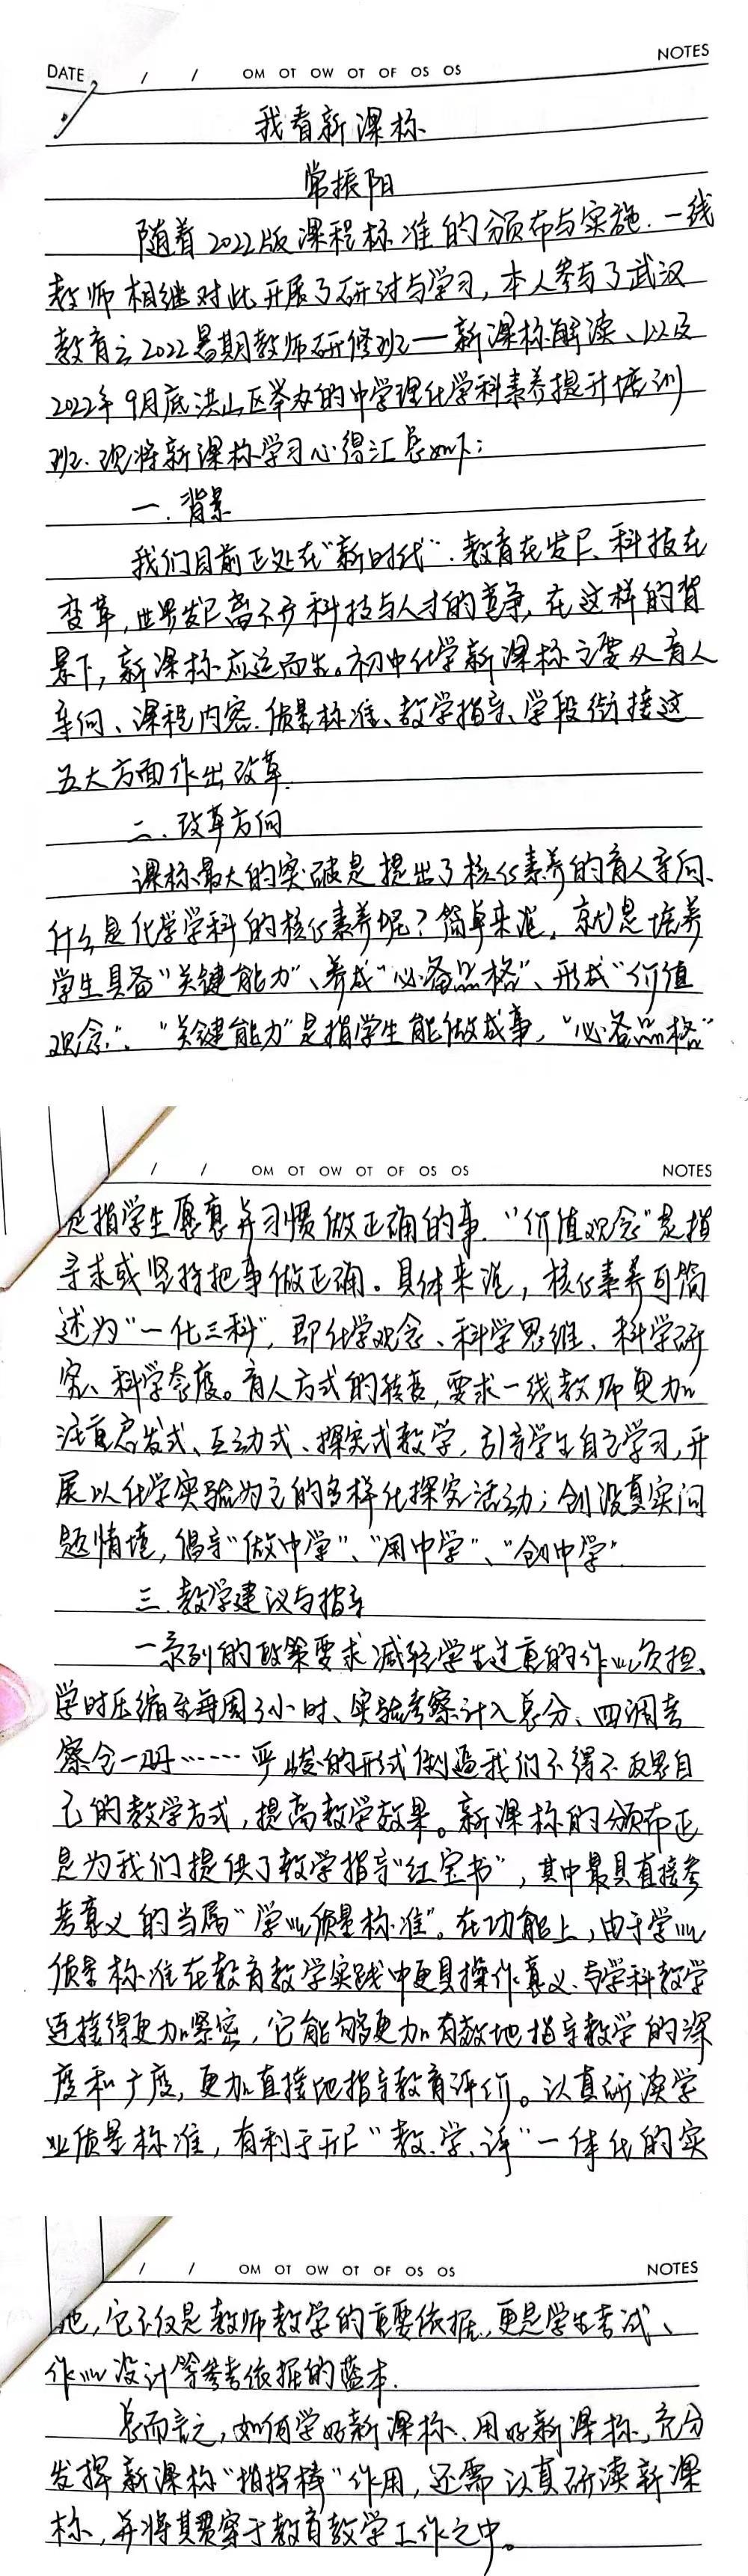 DATE / / OM OT OW OT OF OS OS NOTES
我看新课标
常振阳
随着2022版课程标准的颁布与实施.一线
教师相继对此开展了研讨与学习,本人参与了武汉
教育云2022暑期教师研修班—新课标解读、以及
2022年9月底洪山区举办的中学理化学科素养提升培训
班.现将新课标学习心得汇总如下:
一.背景
我们目前正处在“新时代”.教育在发展、科技在
变革,世界发展离不开科技与人才的竞争,在这样的背
景下,新课标应运而生。初中化学新课标主要从育人
导向、课程内容.质量标准、教学指导、学段衔接这
五大方面作出改革.
二.改革方向
课标最大的突破是提出了核心素养的育人导向、
什么是化学学科的核心素养呢?简单来说,就是培养
学生具备“关键能力”、养成“必备品格”、形成“价值
观念”。“关键能力”是指学生能做成事,“必备品格”
/ / OM OT OW OT OF OS OS NOTES
是指学生愿意并习惯做正确的事.“价值观念”是指
寻求或坚持把事做正确。具体来说,核心素养可简
述为“一化三科”,即化学观念、科学思维、科学研
究、科学态度。育人方式的转变,要求一线教师更加
注重启发式、互动式、探究式教学,引导学生自主学习,开
展以化学实验为主的多样化探究活动;创设真实问
题情境,倡导“做中学”、“用中学”、“创中学”.
三.教学建议与指导
一系列的政策要求减轻学生过重的作业负担、
学时压缩至每周3小时、实验考察计入总分、四调考
察全一册……严峻的形式倒逼我们不得不反思自
己的教学方式,提高教学效果。新课标的颁布正
是为我们提供了教学指导“红宝书”,其中最具直接参
考意义的当属“学业质量标准”。在功能上,由于学业
质量标准在教育教学实践中更具操作意义.与学科教学
连接得更加紧密,它能够更加有效地指导教学的深
度和广度,更加直接地指导教育评价。认真研读学
业质量标准,有利于开展“教、学、评”一体化的实
施,它不仅是教师教学的重要依据,更是学生考试、
/ / OM OT OW OT OF OS OS NOTES
作业设计等参考依据的蓝本.
总而言之,如何学好新课标、用好新课标,充分
发挥新课标“指挥棒”作用,还需认真研读新课
标,并将其贯穿于教育教学工作之中。